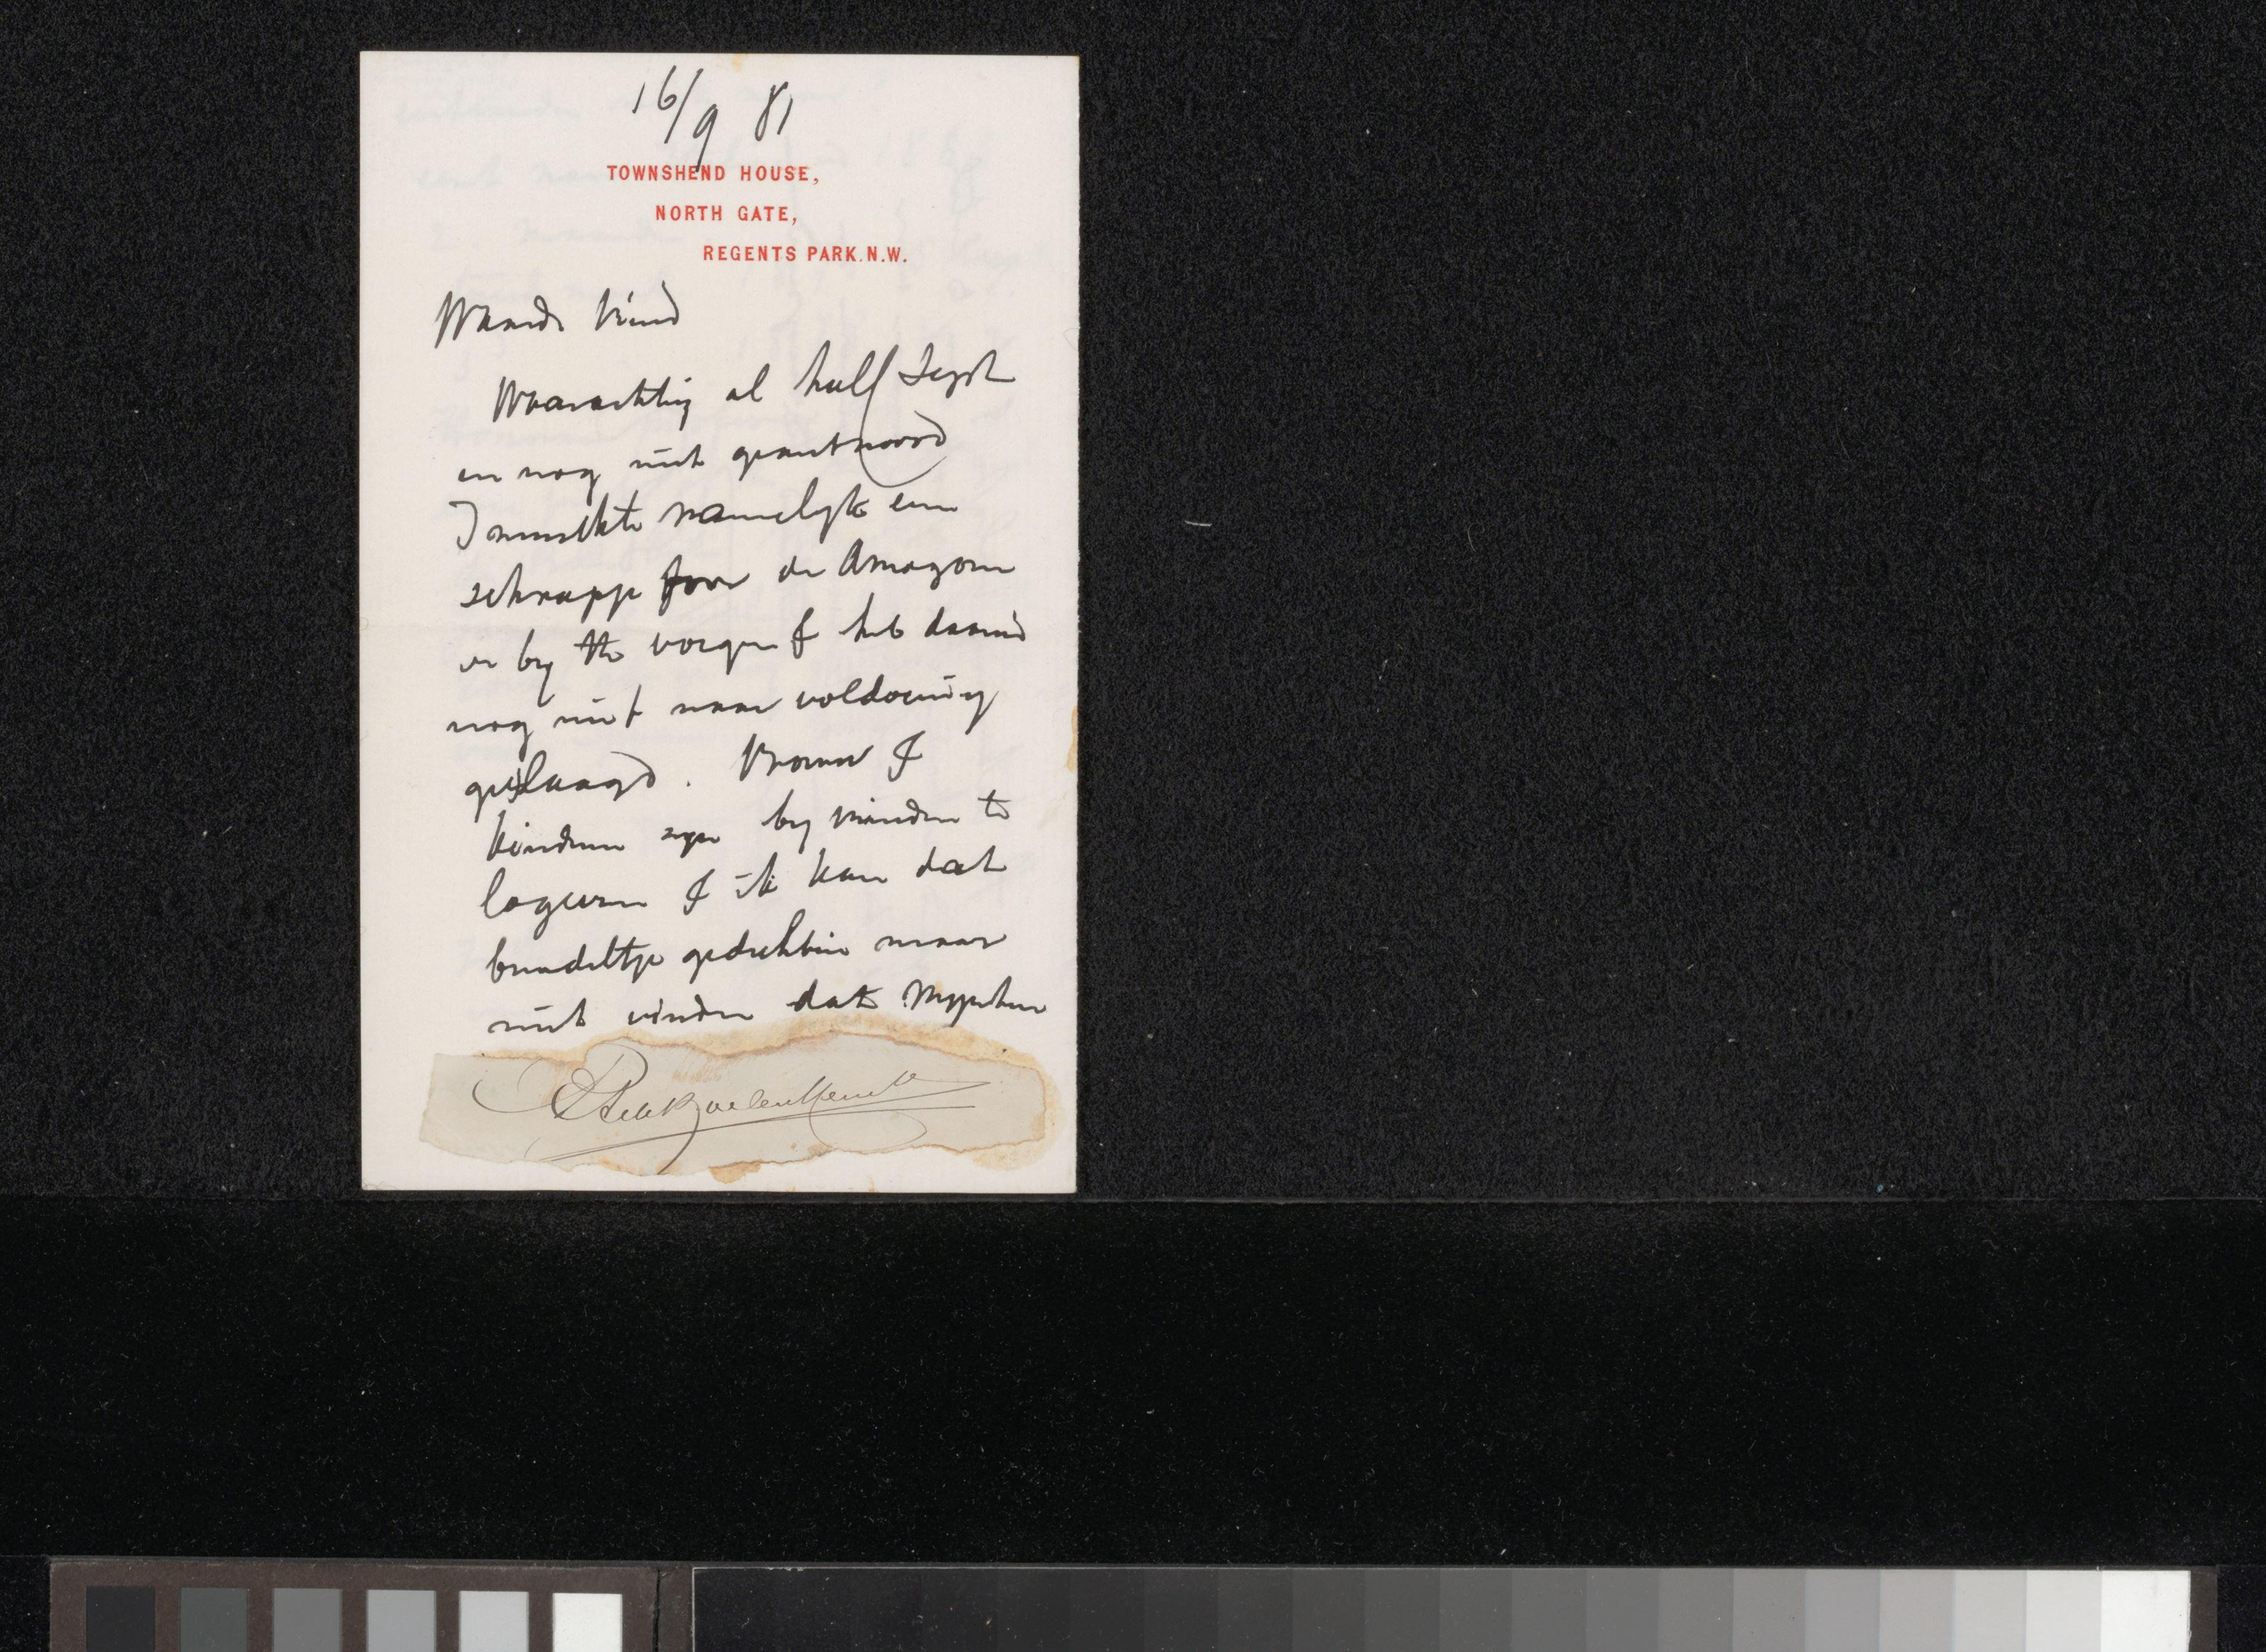 16/9 81
TOWNSHEND HOUSE,
NORTH GATE,
REGENTS PARK. N.W.
Waarde Vriend
Waarachtig al half Sept
en nog niet geantwoord
I wenschte namelyk een
schrapje voor de Amazone
er by te voegen & heb daarin
nog niet naar voldoening
geslaagd. Vrouw &
kinderen zyn by vrinden te
logeeren & ik kan dat
bundeltje gedichten maar
niet vinden dat